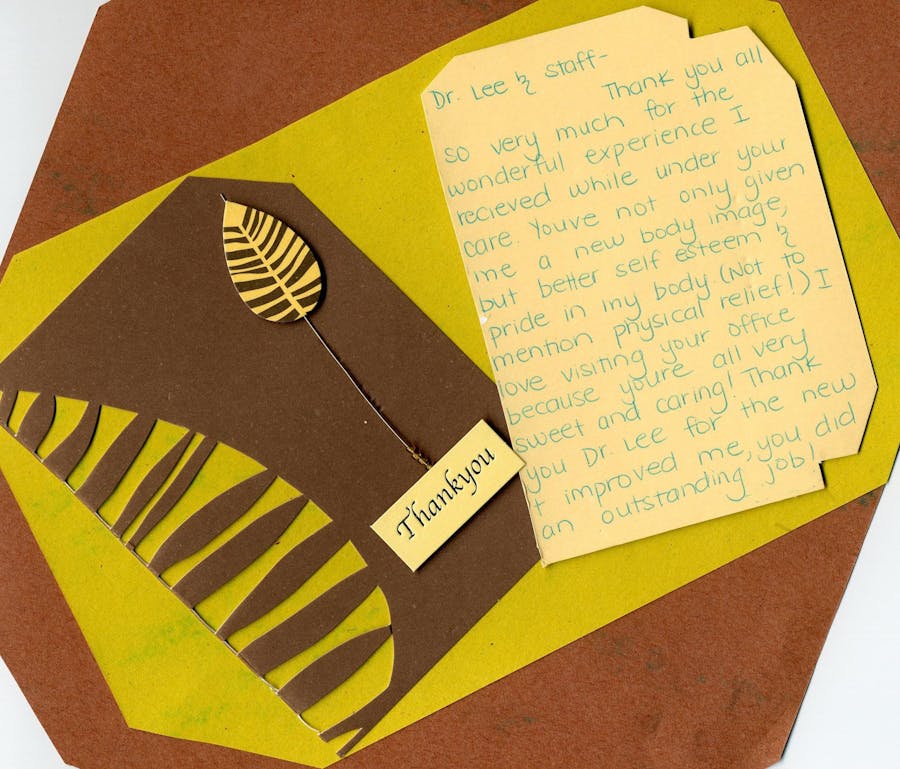 Dr. Lee & staff-
Thank you all
so very much for the
wonderful experience I
recieved while under your
care. Youve not only given
me a new body image,
but better self esteem &
pride in my body (Not to
mention physical relief!) I
love visiting your office
because youre all very
sweet and caring! Thank
you Dr. Lee for the new
& improved me, you did
an outstanding job!
Thankyou